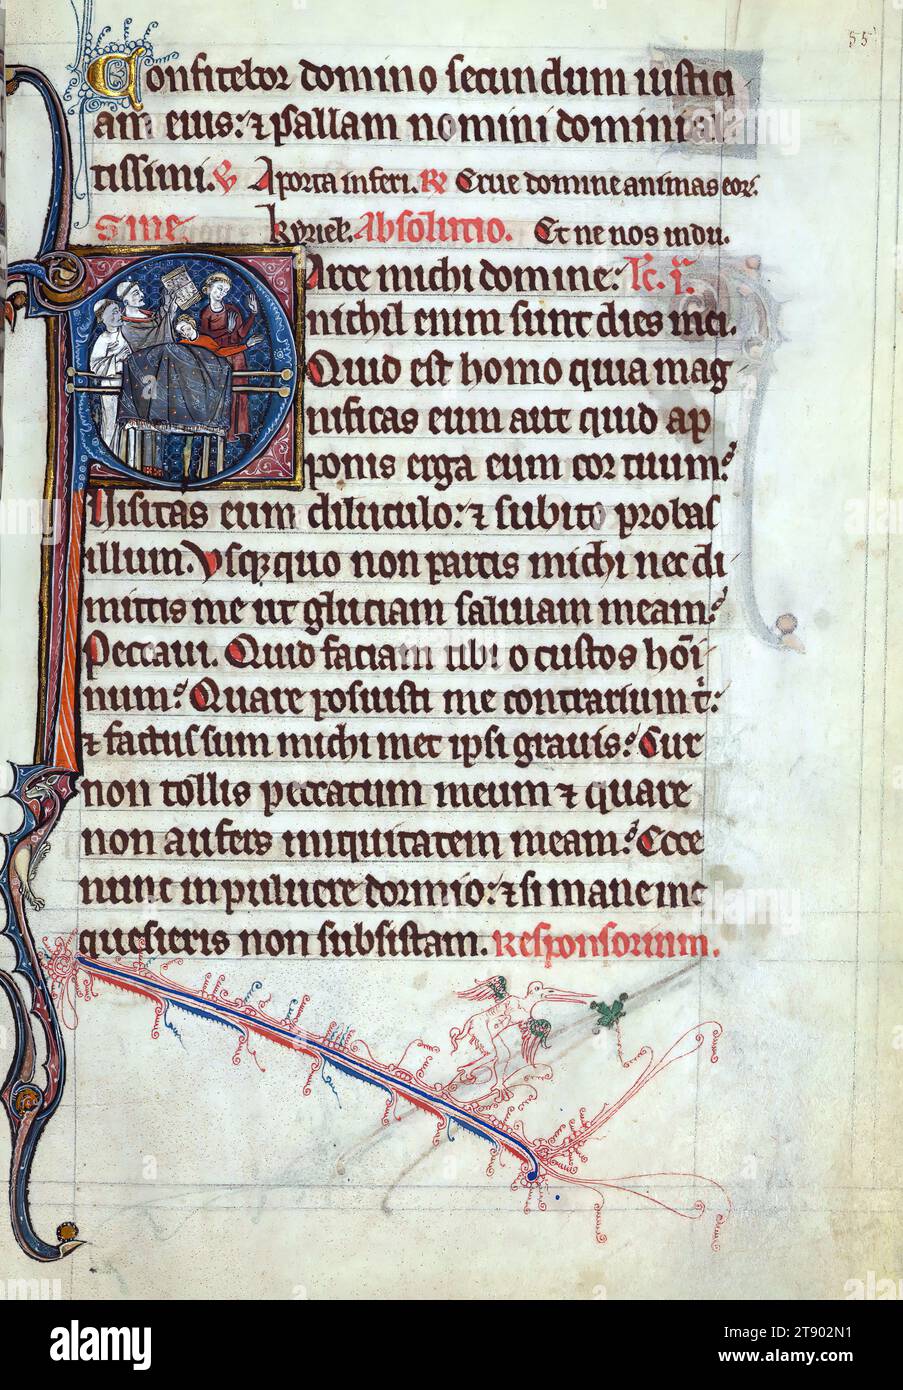 55
Confitebor domino secundum iustici
am eius: ⁊ psallam nomini domini al
tissimi. ℣ A porta inferi. ℟ Erue domine animas eor̄.
Sine. Kyriel̄. Absolutio. Et ne nos indu.
Parce michi domine: Lc̄. i͞a.
nichil enim sunt dies mei.
Quid est homo quia mag
nificas eum aut quid ap
ponis erga eum cor tuum?
Visitas eum diluculo: ⁊ subito probas
illum. Vsqz quo non parcis michi nec di
mittis me ut gluciam saliuam meam?
Peccaui. Quid faciam tibi o custos hōi
num? Quare posuisti me contrarium t̄:
⁊ factus sum michi met ipsi grauis? Cur
non tollis peccatum meum ⁊ quare
non aufers iniquitatem meam? Ecce
nunc in puluere dormio: ⁊ si mane me
quesieris non subsistam. Responsorium.
alamy
Image ID: 2T902N1
www.alamy.com